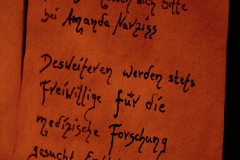 sich bitte
bei Amanda Narziss
Desweiteren werden stets
Freiwillige für die
medizinische Forschung
gesucht